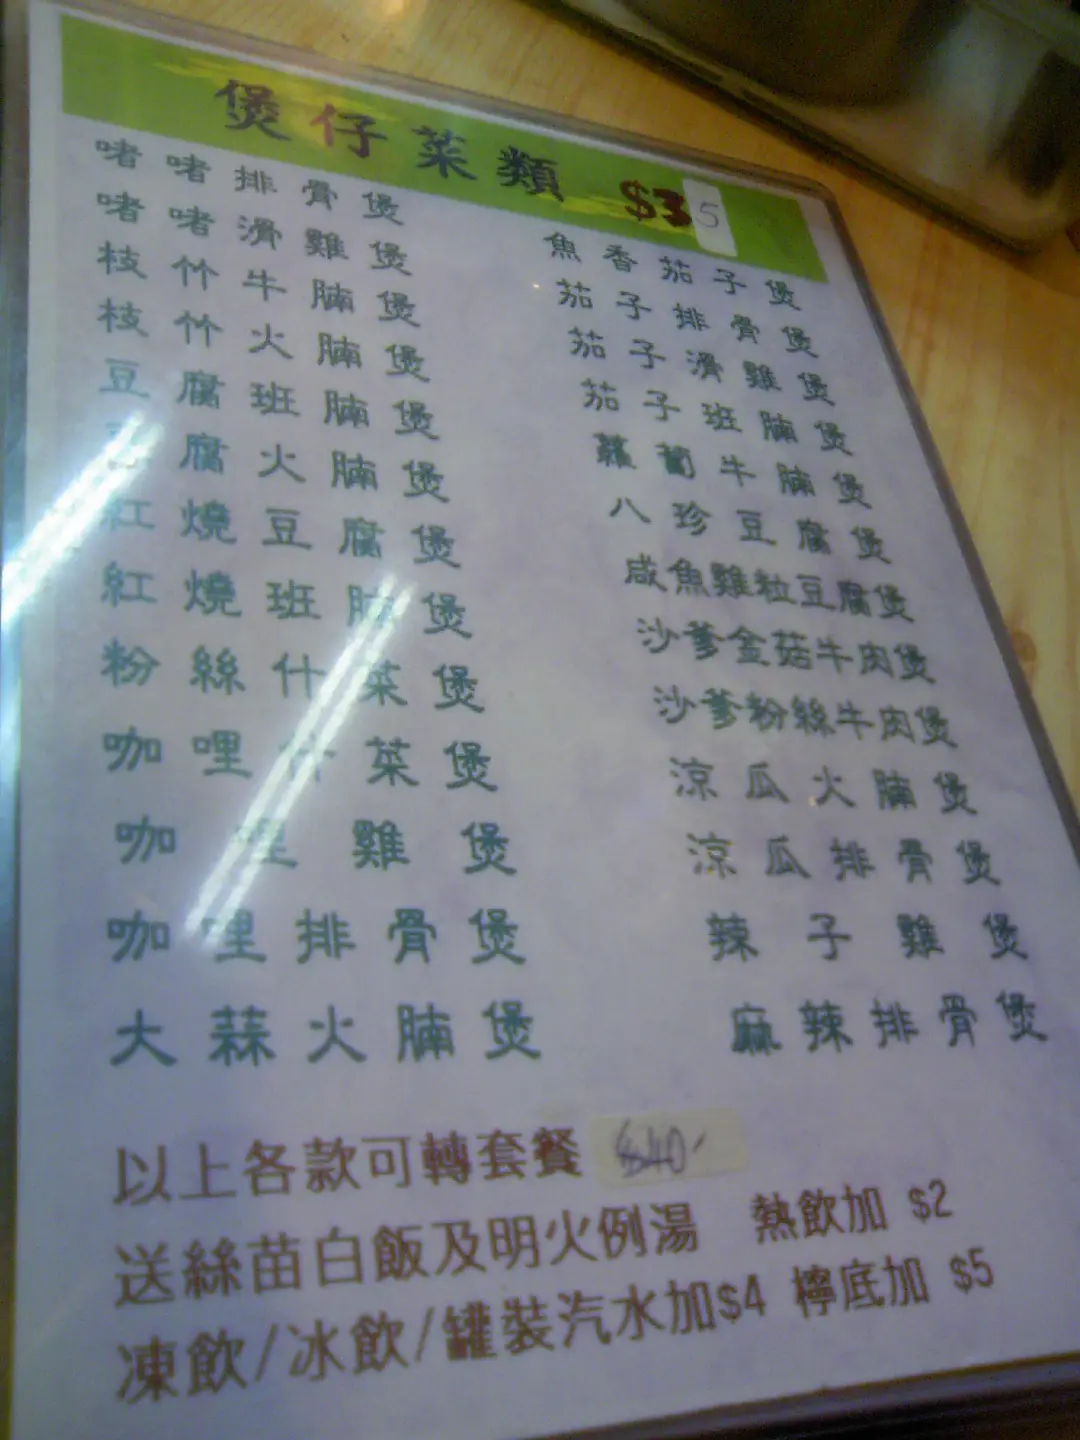 煲仔菜類 $35
啫啫排骨煲
啫啫滑雞煲
枝竹牛腩煲
枝竹火腩煲
豆腐班腩煲
豆腐火腩煲
紅燒豆腐煲
紅燒班腩煲
粉絲什菜煲
咖哩什菜煲
咖哩雞煲
咖哩排骨煲
大蒜火腩煲
魚香茄子煲
茄子排骨煲
茄子滑雞煲
茄子班腩煲
蘿蔔牛腩煲
八珍豆腐煲
咸魚雞粒豆腐煲
沙爹金菇牛肉煲
沙爹粉絲牛肉煲
涼瓜火腩煲
涼瓜排骨煲
辣子雞煲
麻辣排骨煲
以上各款可轉套餐 $40
送絲苗白飯及明火例湯 熱飲加 $2
凍飲/冰飲/罐裝汽水加$4 檸底加 $5